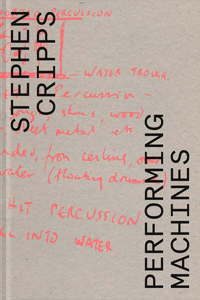 STEPHEN
CRIPPS
PERFORMING
MACHINES
PERCUSSION
— WATER TROUGH.
Percussion —
wood
sheet metal etc
from ceiling, or
water (floating drums)
HIT PERCUSSION
INTO WATER